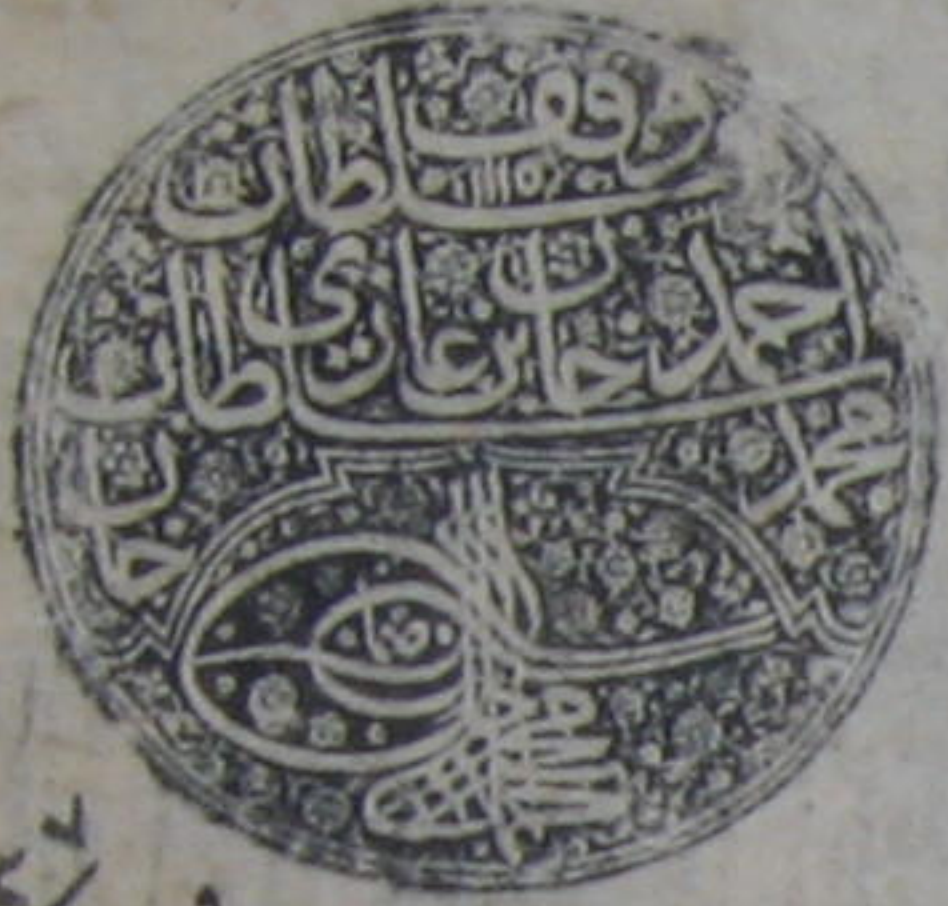 وقف سلطان
١١١٥
احمد خان بن غازي سلطان
محمد خان